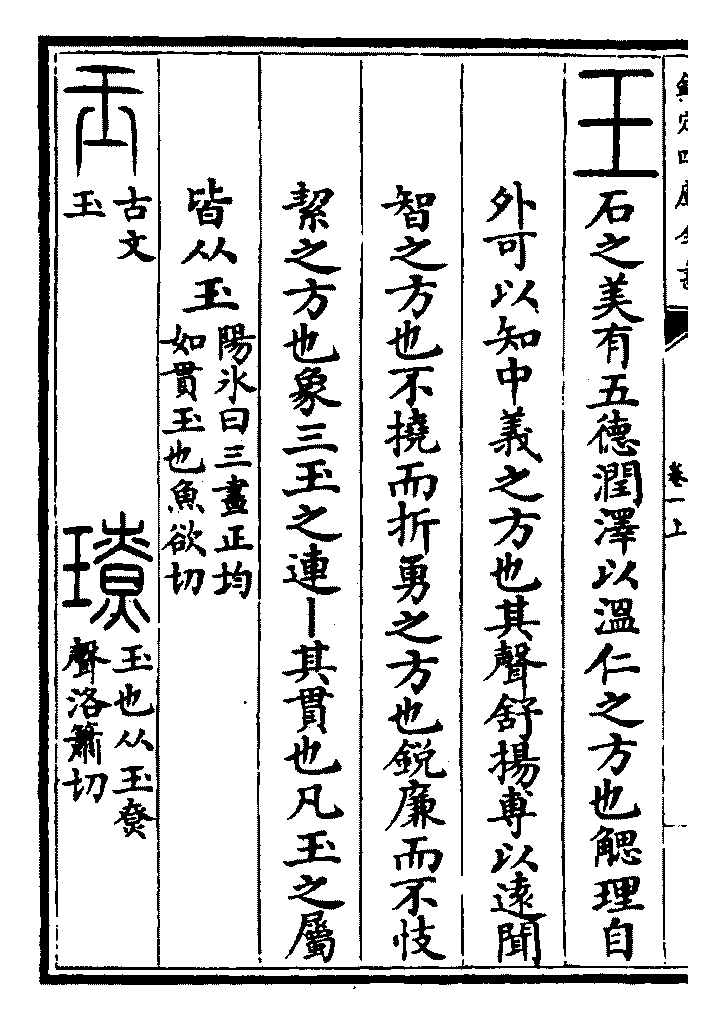 欽定四庫全書
卷一上
王石之美有五德潤澤以溫仁之方也䚡理自
外可以知中義之方也其聲舒揚尃以遠聞
智之方也不撓而折勇之方也銳廉而不忮
絜之方也象三玉之連丨其貫也凡玉之屬
皆从玉
陽冰曰三畫正均
如貫玉也魚欲切
古文
玉
璙
玉也从玉尞
聲洛簫切